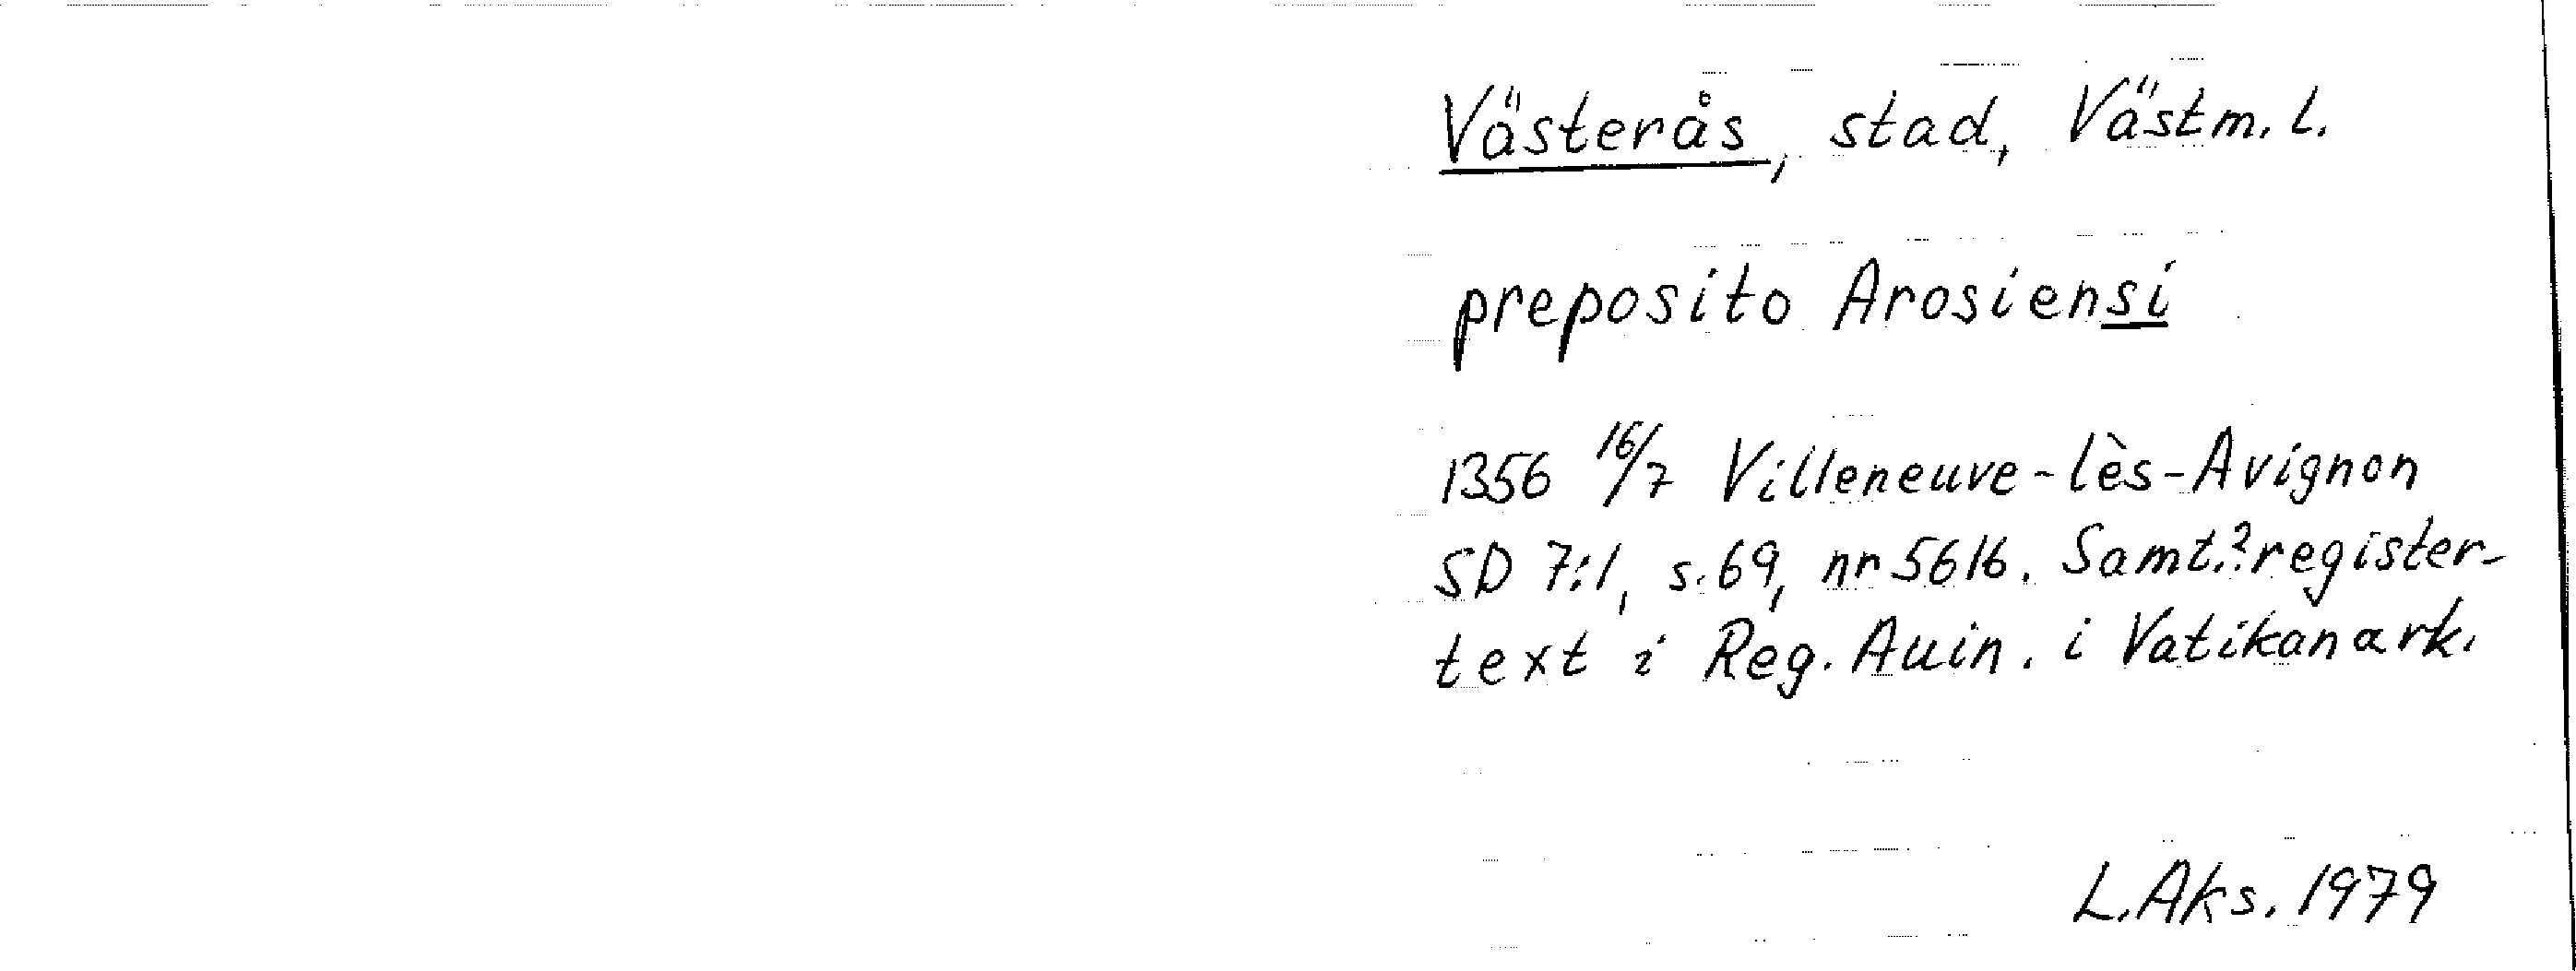 Västerås, stad, Västm. l.
preposito Arosiensi
1356 16/7 Villeneuve-lès-Avignon
SD 7:1, s. 69, nr 5616. Samt.? register-
text i Reg. Auin. i Vatikanark.
L. Aks. 1979